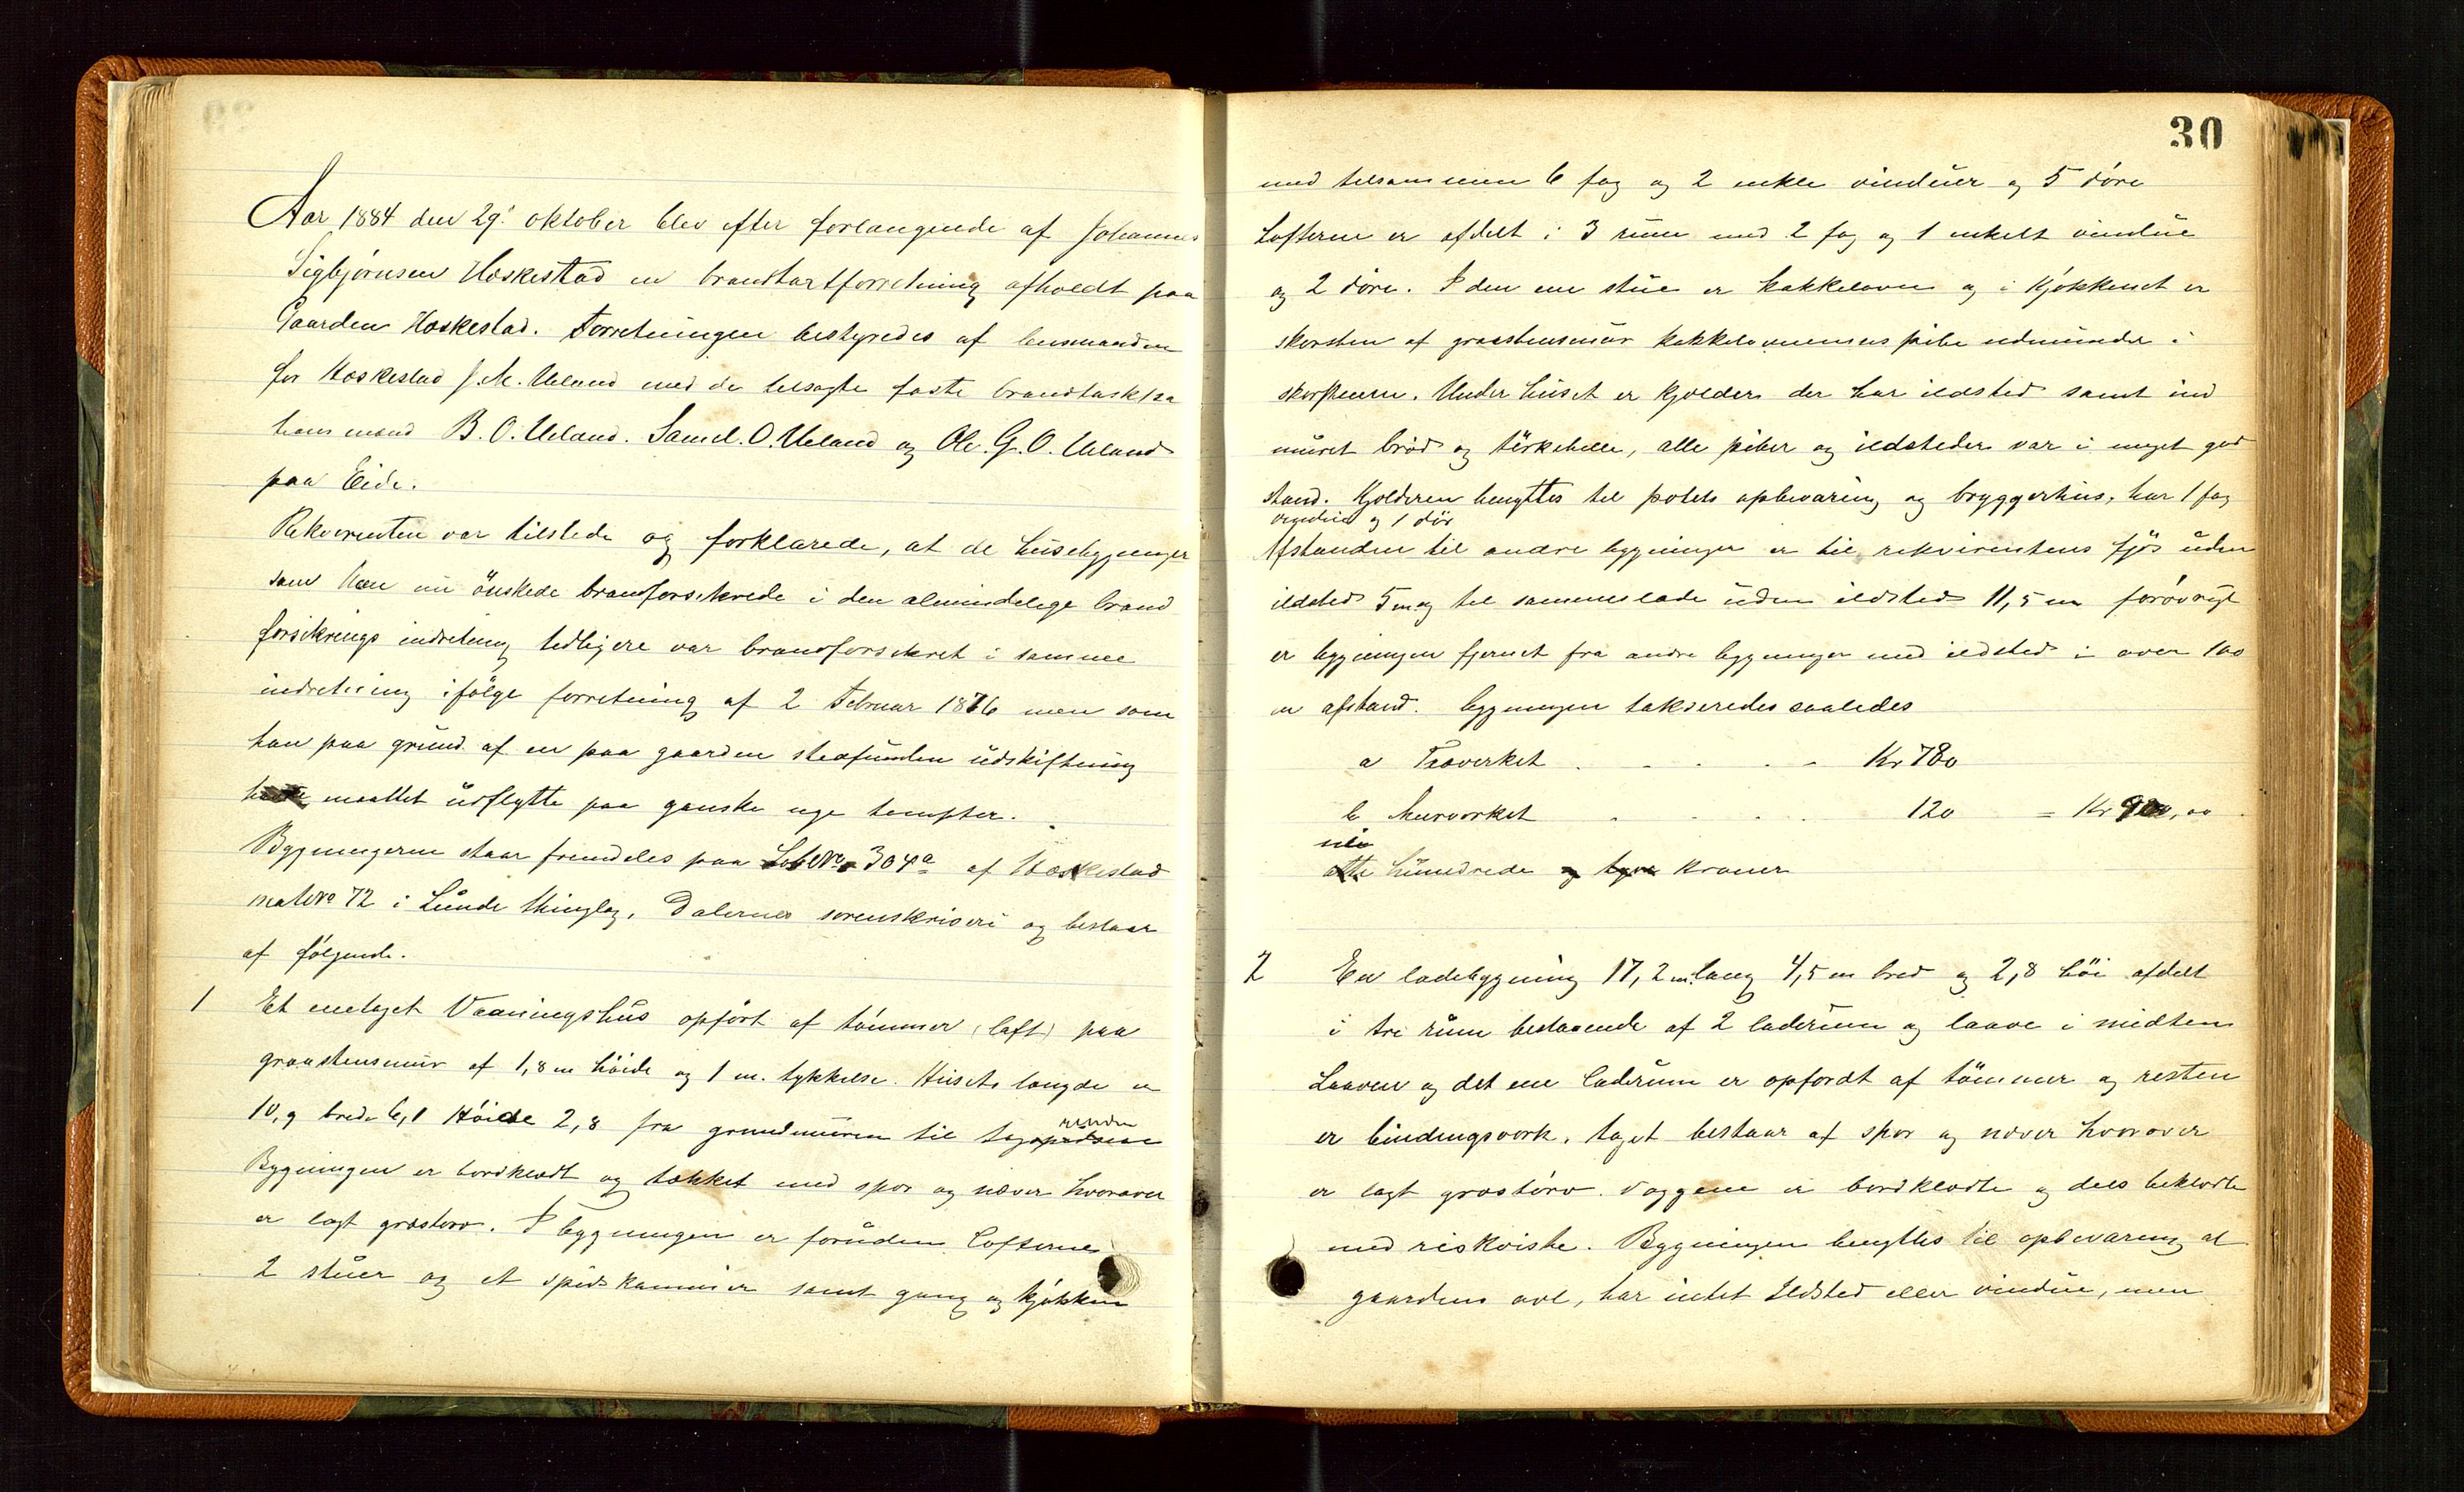 Aar 1884 den 29' oktober blev efter forlangende af Johannes
Sigbjørnsen Hæskestad en brandtaxtforretning afholdt paa
Gaarden Hæskestad. Forretningen bestyredes af lensmanden
for Hæskestad J. M. Ueland med de tilsagte faste brandtaksta
tions mænd B. O. Ueland. Samel. O. Ueland og Ole. G. O. Ueland
paa Eide.
Rekvirenten var tilstede og forklarede, at de husebygninger
som han nu ønskede brandforsikrede i den almindelige brand
forsikrings indretning tidligere var brandforsikret i samme
indretning ifølge forretning af 2 Februar 1876 men som
han paa grund af en paa gaarden stedfunden udskiftning
maattet udflytte paa ganske nye tomter.
Bygningerne staar fremdeles paa LøbNo 304a af Hæskestad
matNo 72 i Lunde thinglag, Dalernes sorenskriveri og bestaar
af følgende.
1 Et enetaget Vaaningshus opført af tømmer (laft) paa
graastensmur af 1,8 m høide og 1 m. tykkelse. Husets længde er
10,9 brede 6,1 Høide 2,8 fra grundmuren til tag
renden
Bygningen er bordklædt og tækket med spor og næver hvorover
er lagt græstorv. I bygningen er foruden lofterne
2 stuer og et spiskammer samt gang og kjøkken
30
med tilsammen 6 fag og 2 enkle vinduer og 5 døre
Lofterne er afdelt i 3 rum med 2 fag og 1 enkelt vindue
og 2 døre. I den ene stue er kakkelovn og i kjøkkenet er
skorsten af graastensmur kakkelovnens pibe udmunder i
skorstenen. Under huset er kjælder der har ildsted samt ind
muret brød og tørkehelle, alle piber og ildsteder var i meget god
stand. Kjælderen benyttes til potets opbevaring og bryggerhus, har 1 fag
vindue og 1 dør
Afstanden til andre bygninger er til rekvirentens fjøs uden
ildsted 5 m og til sammes lade uden ildsted 11,5 m forøvrigt
er bygningen fjernet fra andre bygninger med ildsted i over 100
m afstand. bygningen takseredes saaledes
a Træverket . . . . . Kr 780
b Murverket . . . . 120 = Kr 900,00
ni
otte hundrede og tyve kroner
2 En ladebygning 17,2 m. lang 4,5 m bred og 2,8 høi afdelt
i tre rum bestaaende af 2 laderum og laave i midten
Laaven og det ene laderum er opfordt af tømmer og resten
er bindingsverk, taget bestaar af spor og næver hvorover
er lagt græstørv. væggene er bordklædte og dels beklædte
med riskviste. Bygningen benyttes til opbevaring af
gaardens avl, har intet Ildsted eller vindue, men